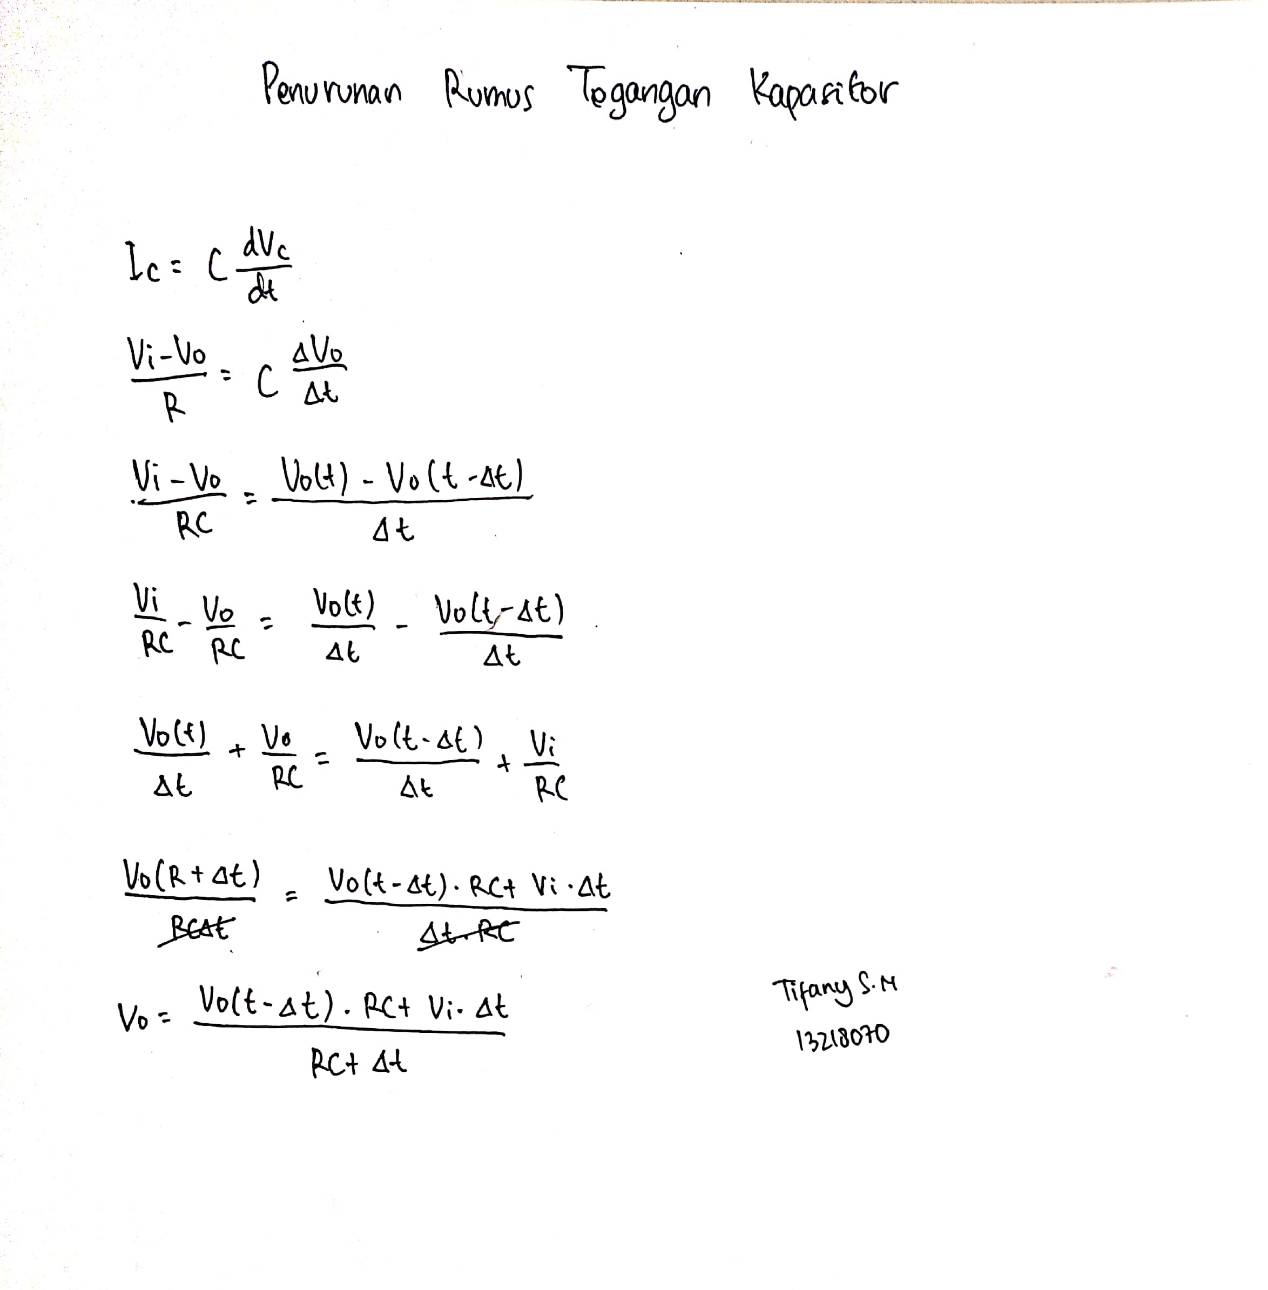 Penurunan Rumus Tegangan Kapasitor
Ic = C dVc/dt
(Vi-Vo)/R = C ΔVo/Δt
(Vi-Vo)/RC = (Vo(t) - Vo(t-Δt))/Δt
Vi/RC - Vo/RC = Vo(t)/Δt - Vo(t-Δt)/Δt
Vo(t)/Δt + Vo/RC = Vo(t-Δt)/Δt + Vi/RC
Vo(R+Δt)/RCΔt = (Vo(t-Δt). RC+ Vi.Δt)/Δt.RC
Vo = (Vo(t-Δt). RC+ Vi. Δt)/(RC+ Δt)
Tifany S.M
13218070